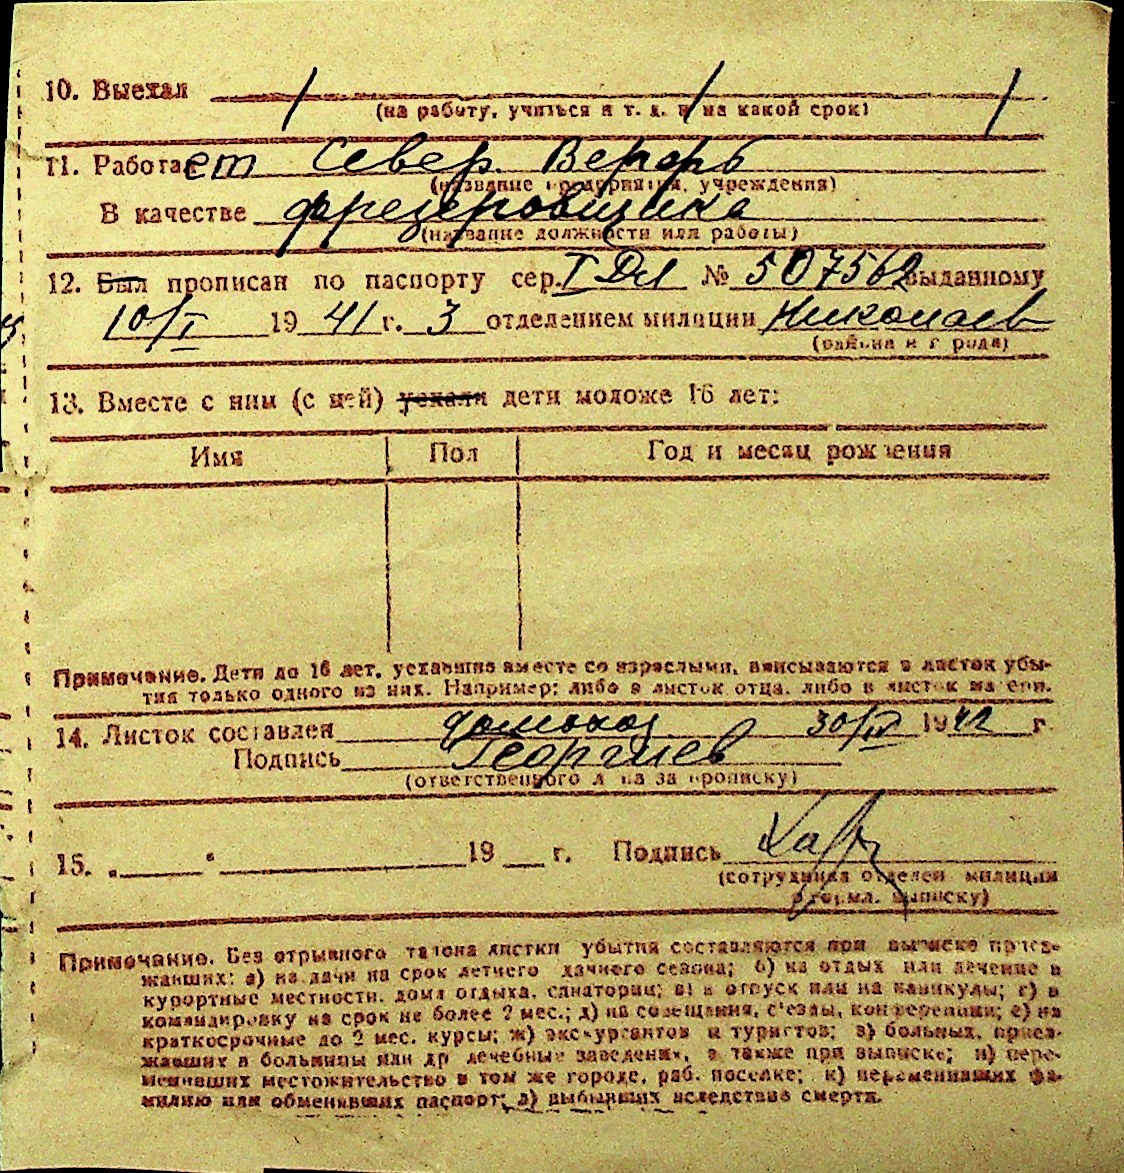 10. Выехал
(на работу, учиться и т. д. и на какой срок)
11. Работает Север. Верфь
(название предприятия, учреждения)
В качестве фрезеровщика
(название должности или работы)
12. Был прописан по паспорту сер. I Дл № 507562 выданному
10/I 1941 г. 3 отделением милиции Николаев
(района и города)
13. Вместе с ним (с ней) уехали дети моложе 16 лет:
Имя Пол Год и месяц рождения
Примечание. Дети до 16 лет, уехавшие вместе со взрослыми, вписываются в листок убы-
тия только одного из них. Например: либо в листок отца, либо в листок матери.
14. Листок составлен 30/IV 1942 г.
Подпись Георгиев
(ответственного лица за прописку)
15. „ “ 19 г. Подпись
(сотрудника отделен. милиции
оформл. выписку)
Примечание. Без отрывного талона листки убытия составляются при выписке приез-
жавших: а) на дачи на срок летнего дачного сезона; б) на отдых или лечение в
курортные местности, дома отдыха, санатории; в) в отпуск или на каникулы; г) в
командировку на срок не более 2 мес.; д) на совещания, с'езды, конференции; е) на
краткосрочные до 2 мес. курсы; ж) экскурсантов и туристов; з) больных, приез-
жавших в больницы или др лечебные заведения, а также при выписке; и) пере-
менивших местожительство в том же городе, раб. поселке; к) переменивших фа-
милию или обменявших паспорт; л) выбывших вследствие смерти.